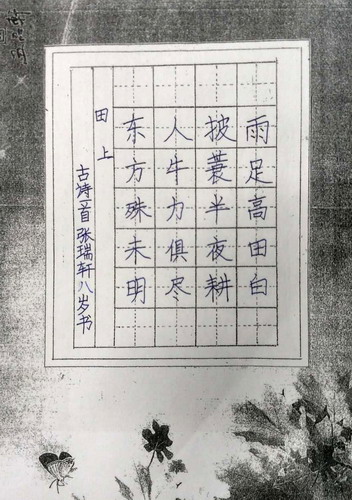 雨足高田白
披蓑半夜耕
人牛力俱尽
东方殊未明
田上
古诗一首 张瑞轩八岁书